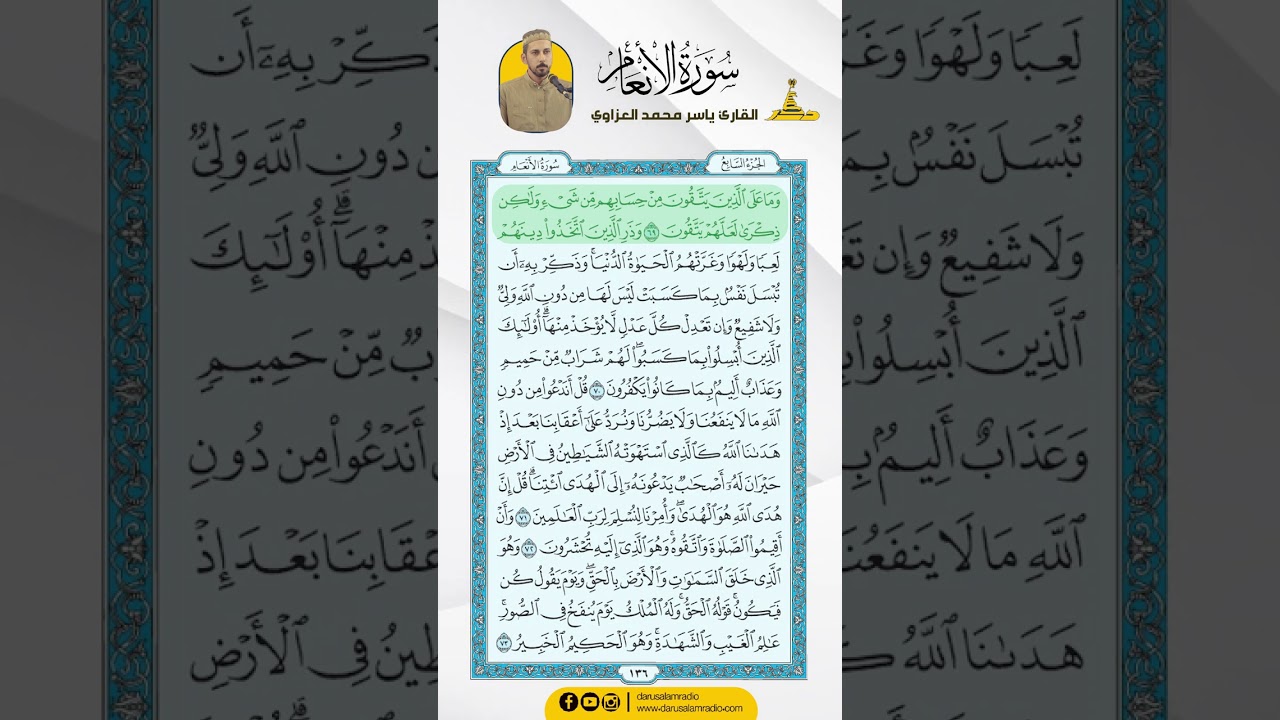 سُورَةُ الْأَنْعَامِ
القارئ ياسر محمد العزاوي
ذكر
الجُزْءُ السَّابِعُ
سُورَةُ الأَنْعَامِ
وَمَا عَلَى ٱلَّذِينَ يَتَّقُونَ مِنْ حِسَابِهِم مِّن شَىْءٍ وَلَٰكِن
ذِكْرَىٰ لَعَلَّهُمْ يَتَّقُونَ ٦٩ وَذَرِ ٱلَّذِينَ ٱتَّخَذُوا۟ دِينَهُمْ
لَعِبًا وَلَهْوًا وَغَرَّتْهُمُ ٱلْحَيَوٰةُ ٱلدُّنْيَا ۚ وَذَكِّرْ بِهِۦٓ أَن
تُبْسَلَ نَفْسٌۢ بِمَا كَسَبَتْ لَيْسَ لَهَا مِن دُونِ ٱللَّهِ وَلِىٌّ
وَلَا شَفِيعٌ وَإِن تَعْدِلْ كُلَّ عَدْلٍ لَّا يُؤْخَذْ مِنْهَآ ۗ أُو۟لَٰٓئِكَ
ٱلَّذِينَ أُبْسِلُوا۟ بِمَا كَسَبُوا۟ ۖ لَهُمْ شَرَابٌ مِّنْ حَمِيمٍ
وَعَذَابٌ أَلِيمٌۢ بِمَا كَانُوا۟ يَكْفُرُونَ ٧٠ قُلْ أَنَدْعُوا۟ مِن دُونِ
ٱللَّهِ مَا لَا يَنفَعُنَا وَلَا يَضُرُّنَا وَنُرَدُّ عَلَىٰٓ أَعْقَابِنَا بَعْدَ إِذْ
هَدَىٰنَا ٱللَّهُ كَٱلَّذِى ٱسْتَهْوَتْهُ ٱلشَّيَٰطِينُ فِى ٱلْأَرْضِ
حَيْرَانَ لَهُۥٓ أَصْحَٰبٌ يَدْعُونَهُۥٓ إِلَى ٱلْهُدَى ٱئْتِنَا ۗ قُلْ إِنَّ
هُدَى ٱللَّهِ هُوَ ٱلْهُدَىٰ ۖ وَأُمِرْنَا لِنُسْلِمَ لِرَبِّ ٱلْعَٰلَمِينَ ٧١ وَأَنْ
أَقِيمُوا۟ ٱلصَّلَوٰةَ وَٱتَّقُوهُ ۚ وَهُوَ ٱلَّذِىٓ إِلَيْهِ تُحْشَرُونَ ٧٢ وَهُوَ
ٱلَّذِى خَلَقَ ٱلسَّمَٰوَٰتِ وَٱلْأَرْضَ بِٱلْحَقِّ ۖ وَيَوْمَ يَقُولُ كُن
فَيَكُونُ ۚ قَوْلُهُ ٱلْحَقُّ ۚ وَلَهُ ٱلْمُلْكُ يَوْمَ يُنفَخُ فِى ٱلصُّورِ ۚ
عَٰلِمُ ٱلْغَيْبِ وَٱلشَّهَٰدَةِ ۚ وَهُوَ ٱلْحَكِيمُ ٱلْخَبِيرُ ٧٣
١٣٦
darusalamradio
www.darusalamradio.com